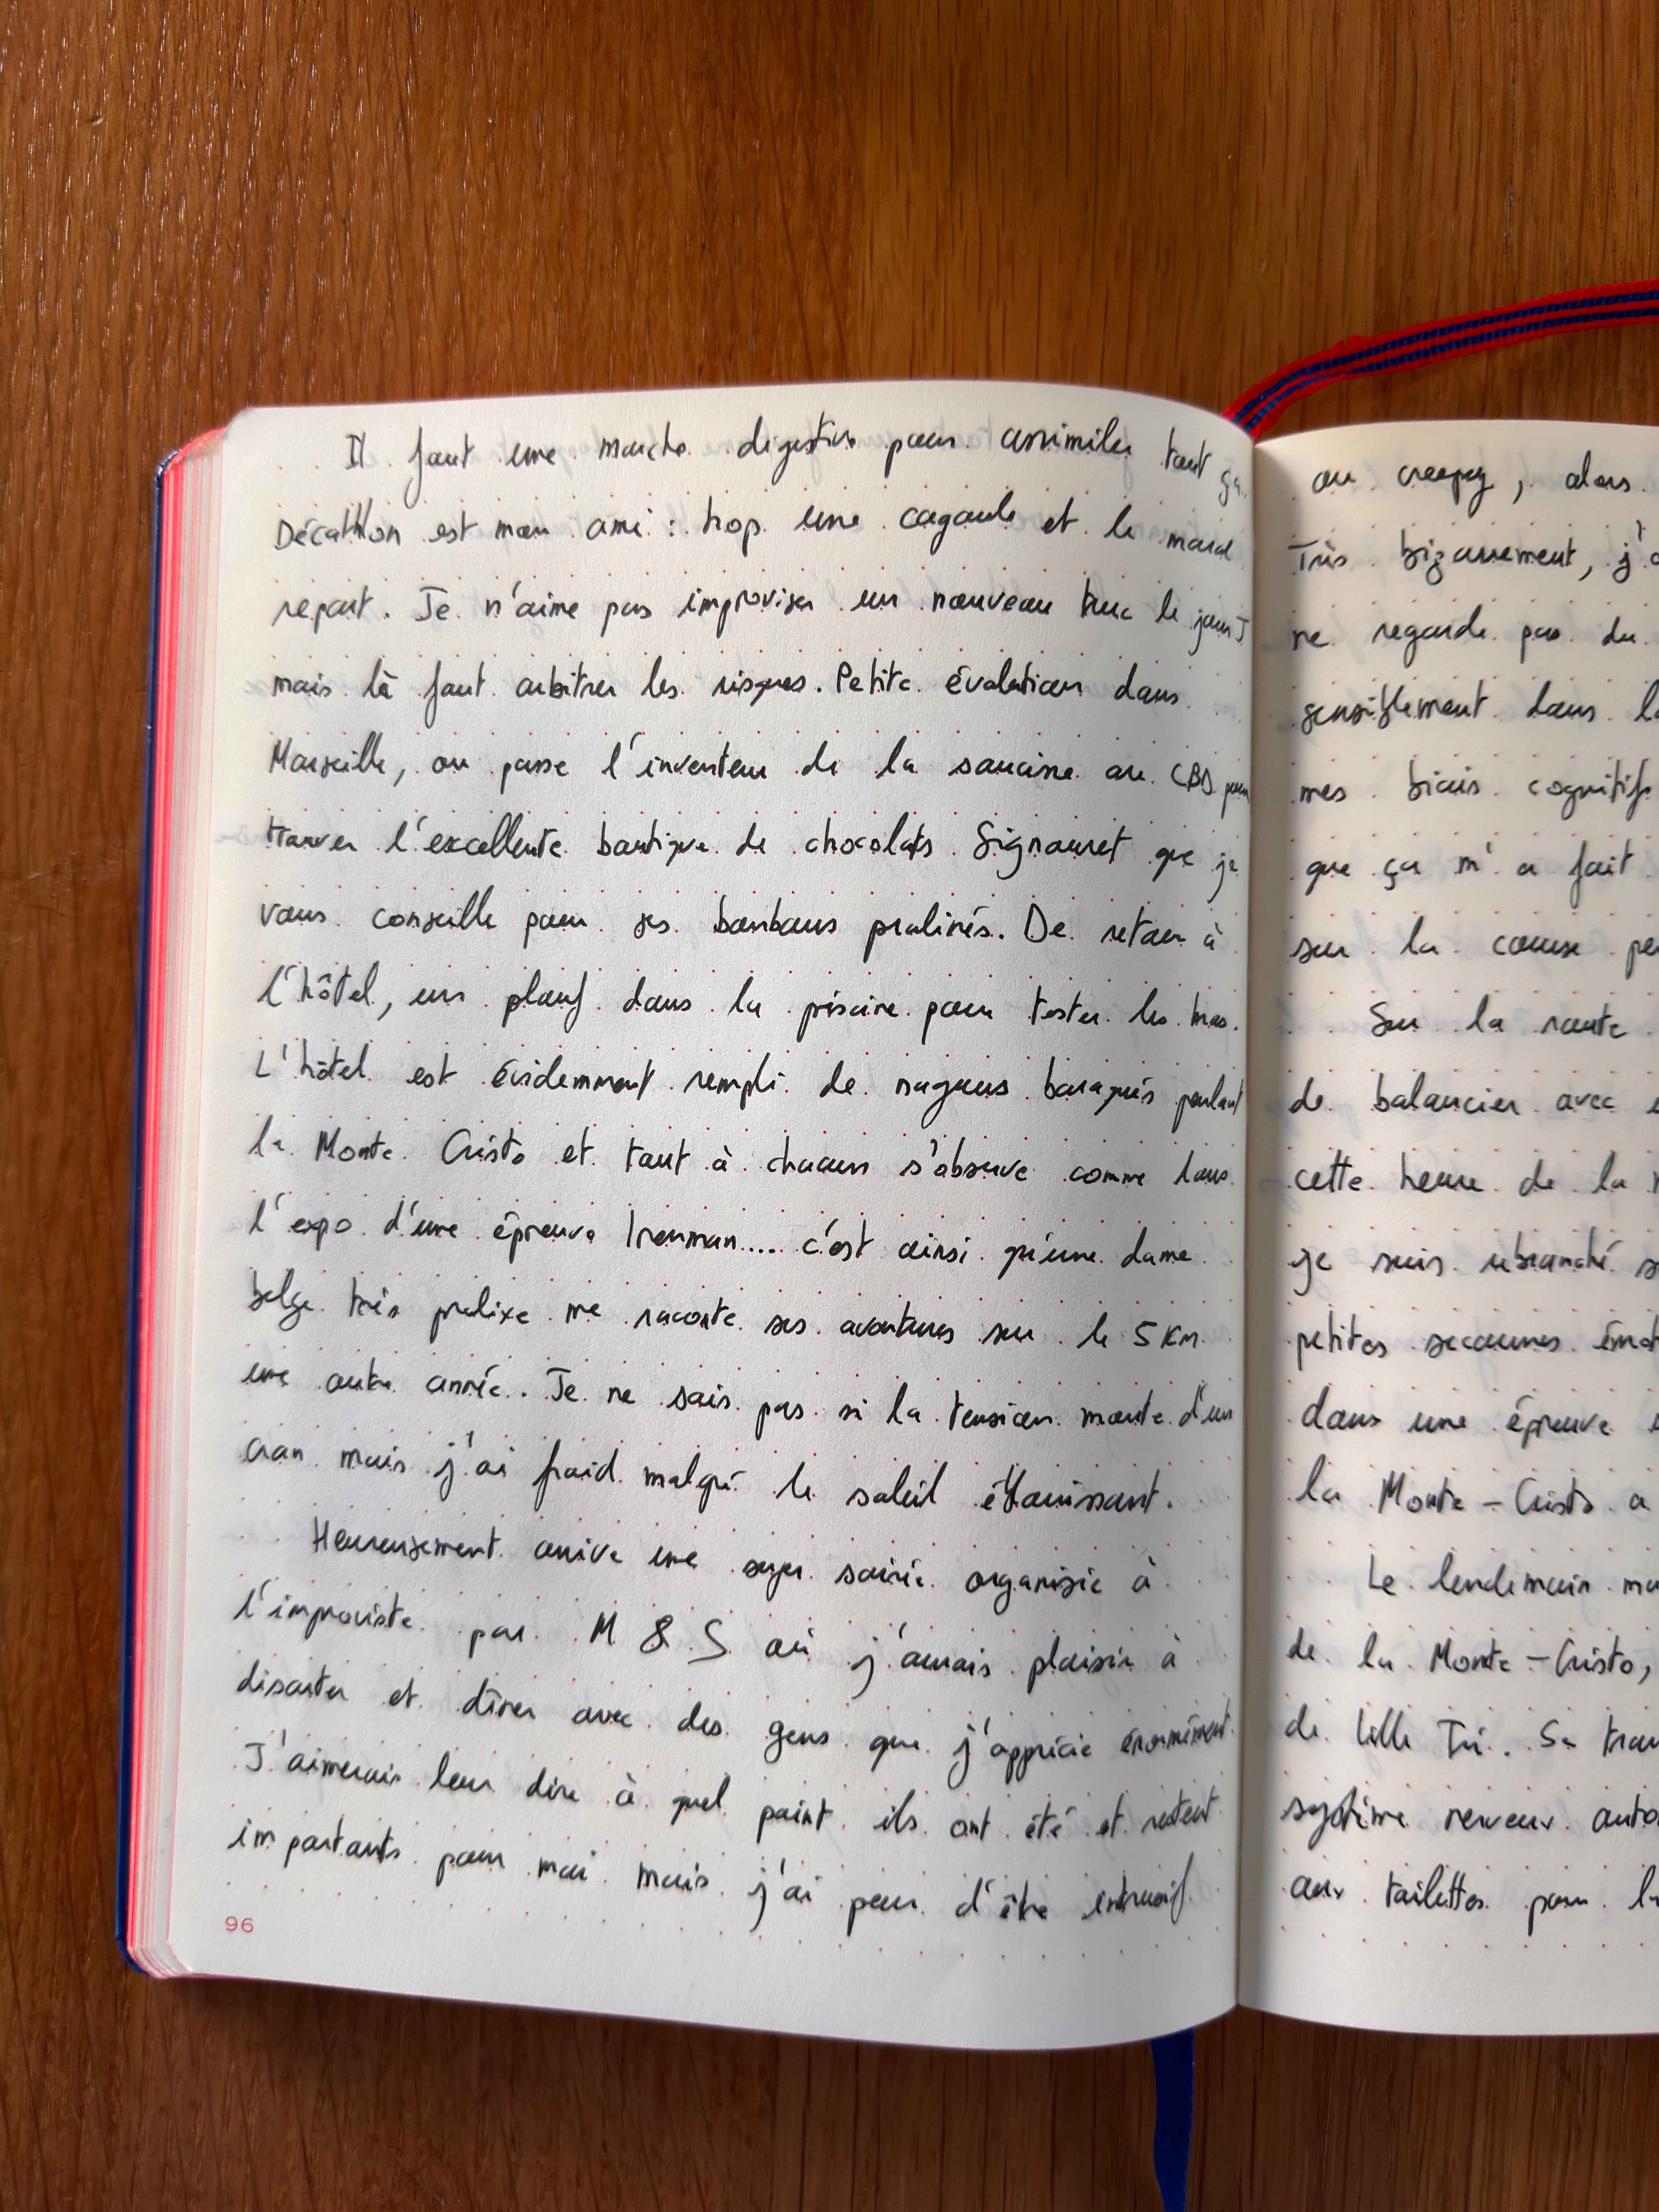 Il faut une marche digestive pour assimiler tout ça.
Décathlon est mon ami : hop une cagoule et le mard
repart. Je n'aime pas improviser un nouveau truc le jour J
mais là faut arbitrer les risques. Petite évolution dans
Marseille, on passe l'inventeur de la saucisse au CBD pour
trouver l'excellente boutique de chocolats Signouret que je
vous conseille pour ses bonbons pralinés. De retour à
l'hôtel, un plouf dans la piscine pour tester les bras.
L'hôtel est évidemment rempli de nageurs baraqués parlant
la Monte Cristo et tout à chacun s'observe comme dans
l'expo d'une épreuve Ironman.... c'est ainsi qu'une dame
belge très prolixe me raconte ses aventures sur le 5 km
une autre année. Je ne sais pas si la tension monte d'un
cran mais j'ai froid malgré le soleil éblouissant.
Heureusement arrive une super soirée organisée à
l'improviste par M & S où j'aurais plaisir à
discuter et dîner avec des gens que j'apprécie énormément.
J'aimerais leur dire à quel point ils ont été et restent
importants pour moi mais j'ai peur d'être intrusif
96
ou creepy, alors
Très bizarrement, j'
ne regarde pas du
sensiblement dans
mes biais cognitifs
que ça m'a fait
sur la course
Sur la route
de balancier avec
cette heure de la
je suis rebranché
petites secousses
dans une épreuve
la Monte-Cristo a
Le lendemain
de la Monte-Cristo,
de Lille Tri. Sa
système nerveux
aux toilettes pour